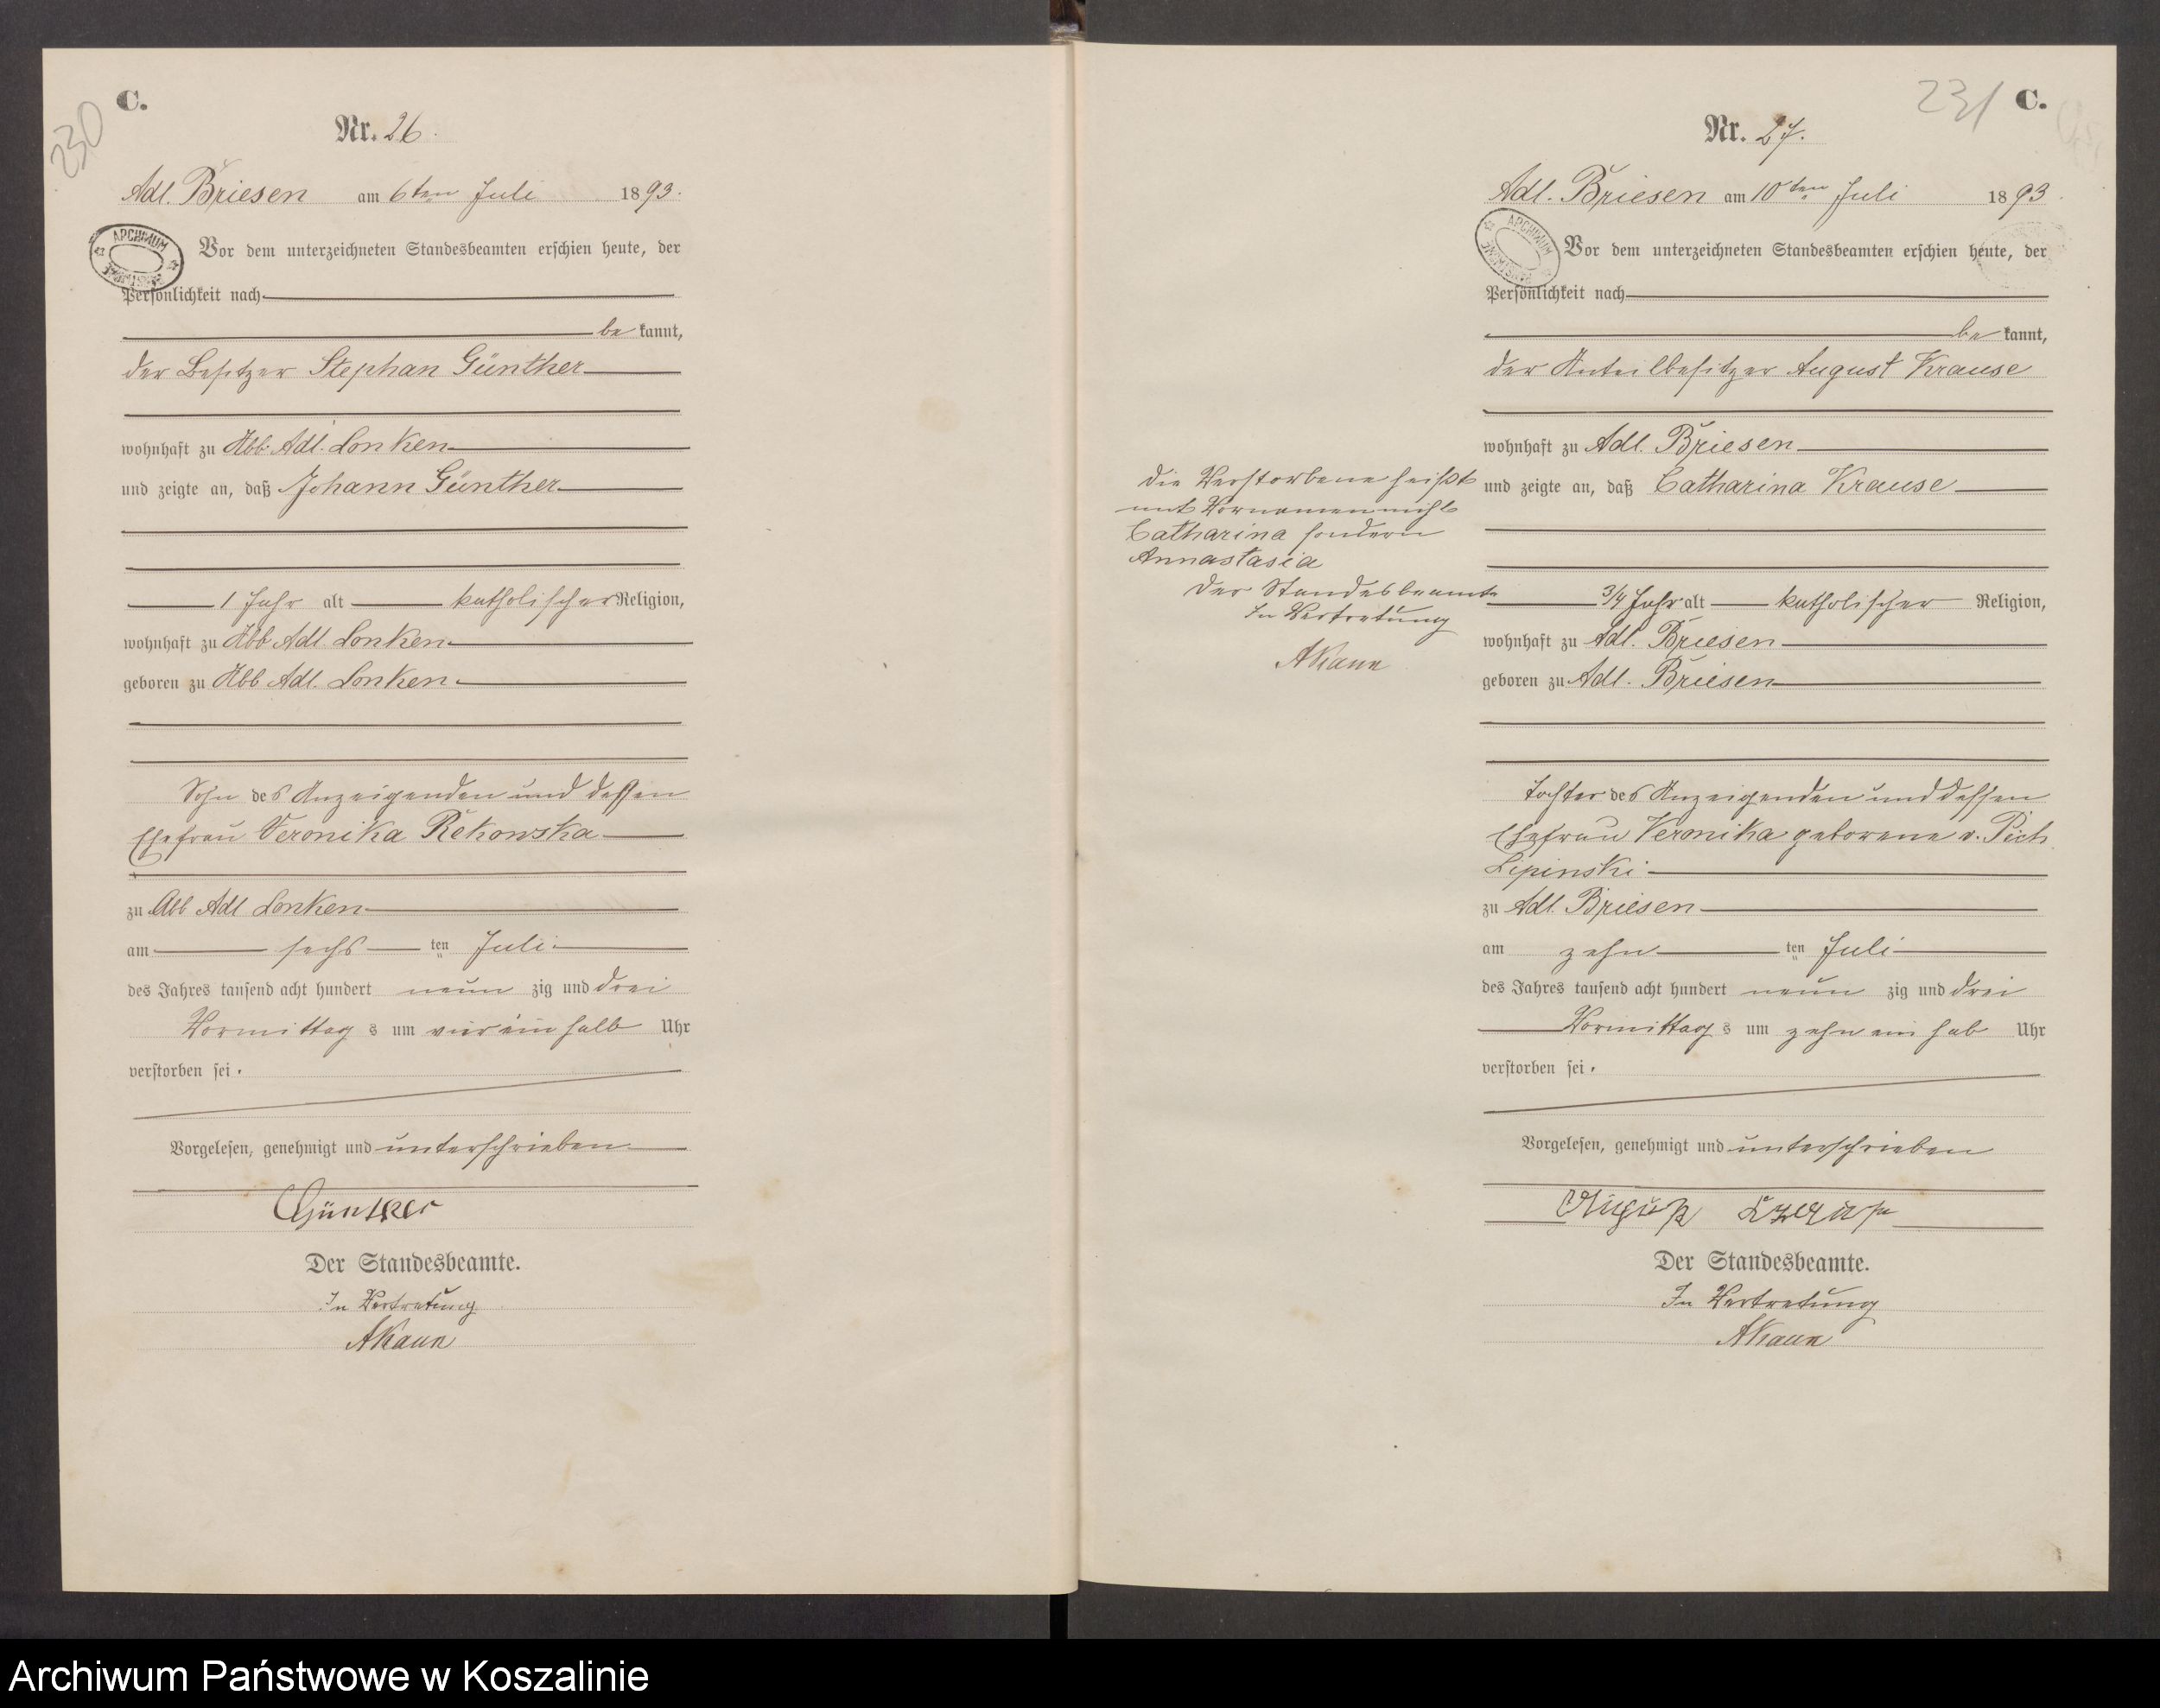 C.
230
Nr. 26.
Adl. Briesen am 6ten Juli 1893.
ARCHIWUM
Vor dem unterzeichneten Standesbeamten erschien heute, der
Persönlichkeit nach
be kannt,
der Besitzer Stephan Günther
wohnhaft zu Abb. Adl. Lonken
und zeigte an, daß Johann Günther
1 Jahr alt katholischer Religion,
wohnhaft zu Abb Adl. Lonken
geboren zu Abb Adl. Lonken
Sohn des Anzeigenden und dessen
Ehefrau Veronika Rekowska
zu Abb Adl Lonken
am sechs ten Juli
des Jahres tausend acht hundert neun zig und drei
Vormittag s um vier ein halb Uhr
verstorben sei.
Vorgelesen, genehmigt und unterschrieben
Günther
Der Standesbeamte.
In Vertretung
AKaun
231 C.
Nr. 27.
Adl. Briesen am 10ten Juli 1893
ARCHIWUM
Vor dem unterzeichneten Standesbeamten erschien heute, der
Persönlichkeit nach
be kannt,
der Anteilbesitzer August Krause
wohnhaft zu Adl. Briesen
und zeigte an, daß Catharina Krause
3/4 Jahr alt katholischer Religion,
wohnhaft zu Adl. Briesen
geboren zu Adl. Briesen
Tochter des Anzeigenden und dessen
Ehefrau Veronika geborene v. Pich
Lipinski
zu Adl. Briesen
am zehn ten Juli
des Jahres tausend acht hundert neun zig und drei
Vormittag s um zehn ein hab Uhr
verstorben sei.
Vorgelesen, genehmigt und unterschrieben
August
Der Standesbeamte.
In Vertretung
AKaun
Die Verstorbene heißt
mit Vornamen nicht
Catharina sondern
Annastasia
Der Standesbeamte
In Vertretung
AKaun
Archiwum Państwowe w Koszalinie